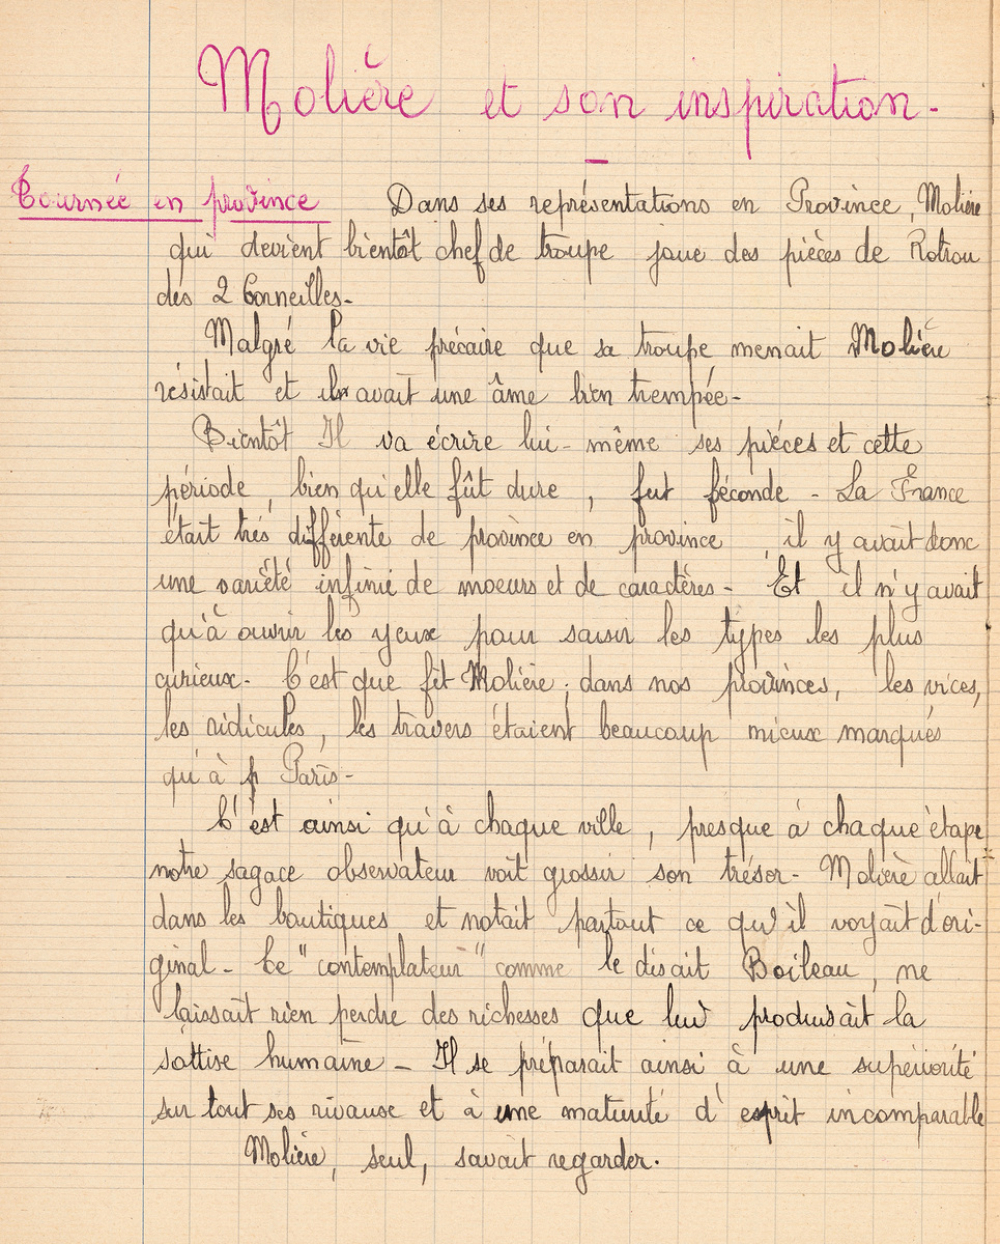 Molière et son inspiration.
Tournée en province Dans ses représentations en Province, Molière
qui devient bientôt chef de troupe joue des pièces de Rotrou
des 2 Corneilles.
Malgré la vie précaire que sa troupe menait Molière
résistait et il avait une âme bien trempée.
Bientôt Il va écrire lui-même ses pièces et cette
période, bien qu'elle fût dure, fut féconde. La France
était très différente de province en province, il y avait donc
une variété infinie de moeurs et de caractères. Et il n'y avait
qu'à ouvrir les yeux pour saisir les types les plus
curieux. C'est que fit Molière; dans nos provinces, les vices,
les ridicules, les travers étaient beaucoup mieux marqués
qu'à p Paris.
C'est ainsi qu'à chaque ville, presque à chaque étape
notre sagace observateur voit grossir son trésor. Molière allait
dans les boutiques et notait partout ce qu'il voyait d'ori-
ginal. Ce "contemplateur" comme le disait Boileau, ne
laissait rien perdre des richesses que lui produisait la
sottise humaine. Il se préparait ainsi à une supériorité
sur tout ses rivaux et à une maturité d'esprit incomparable
Molière, seul, savait regarder.